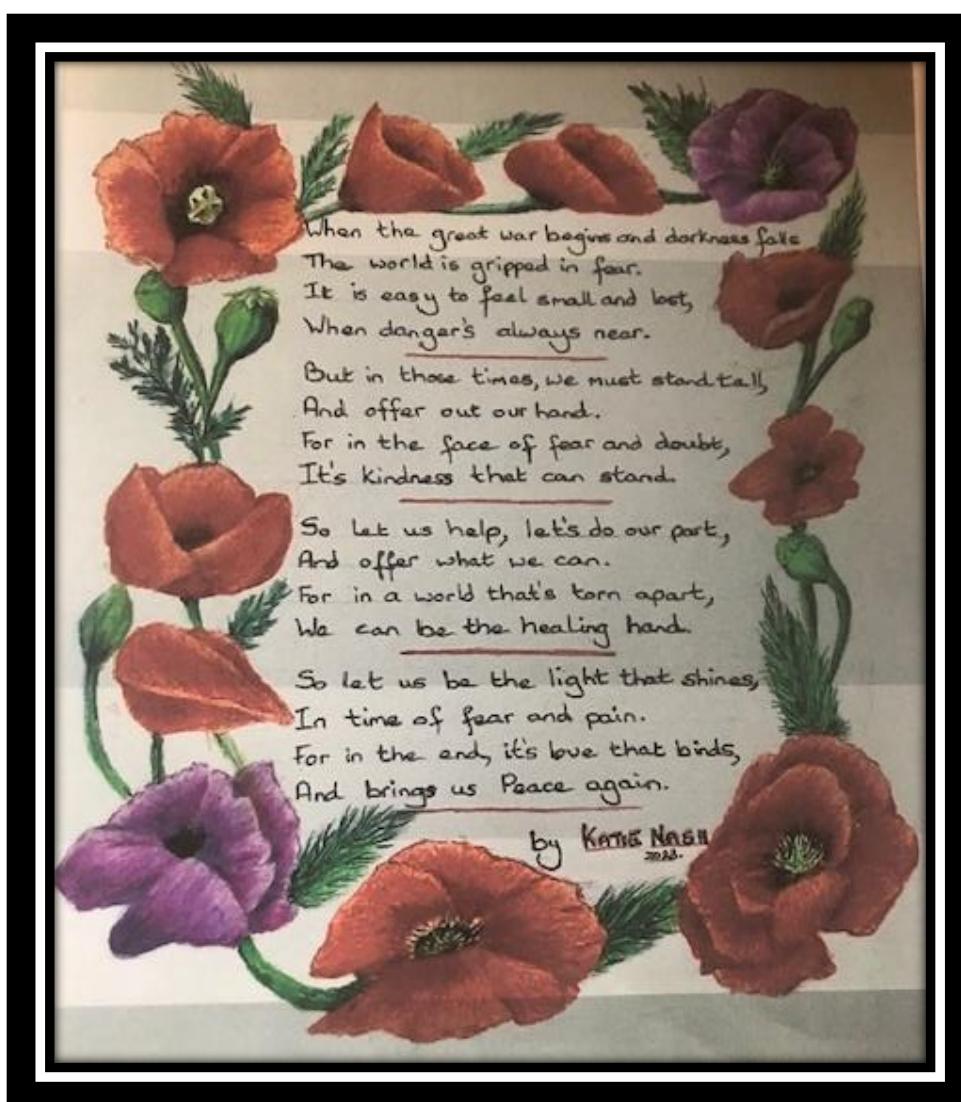 When the great war begins and darkness falls
The world is gripped in fear.
It is easy to feel small and lost,
When danger's always near.
But in those times, we must stand tall,
And offer out our hand.
For in the face of fear and doubt,
It's kindness that can stand.
So let us help, let's do our part,
And offer what we can.
For in a world that's torn apart,
We can be the healing hand.
So let us be the light that shines,
In time of fear and pain.
For in the end, it's love that binds,
And brings us Peace again.
by KATIE NASH
2023.